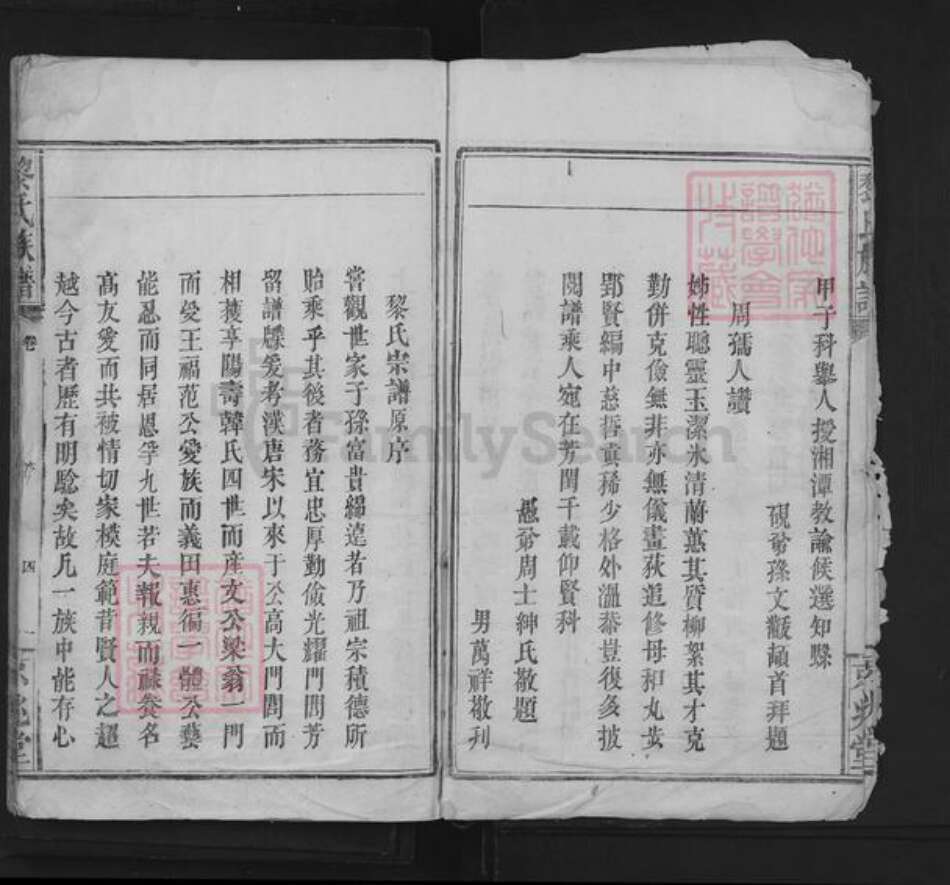 甲子科舉人授湘潭教諭候選知縣
硯爺孫文巘頓首拜題
周孺人讚
姊性聰靈玉潔氷清蘭蕙其質柳絮其才克
勤併克儉無非亦無儀畫荻追修母和丸貢
郢賢編中慈哲真稀少格外溫恭豈復多披
閱譜乘人宛在芳閨千載仰賢科
愚爺周士紳氏敬題
男萬祥敬刋
黎氏宗譜原序
嘗觀世家子孫富貴綿遠者乃祖宗積德所
貽乘乎其後者務宜忠厚勤儉光耀門閭芳
留譜牒爰考漢唐宋以來于公高大門閭而
相蓰享陽壽韓氏四世而産文公梁翁一門
而受王福范公愛族而義田惠徧一體公藝
能忍而同居恩孚九世若夫報親而蘇養名
髙友愛而共被情切家模庭範昔賢人之超
越今古者歴有明騐矣故凡一族中能存心
黎氏族譜
卷
四
京兆堂
FamilySearch